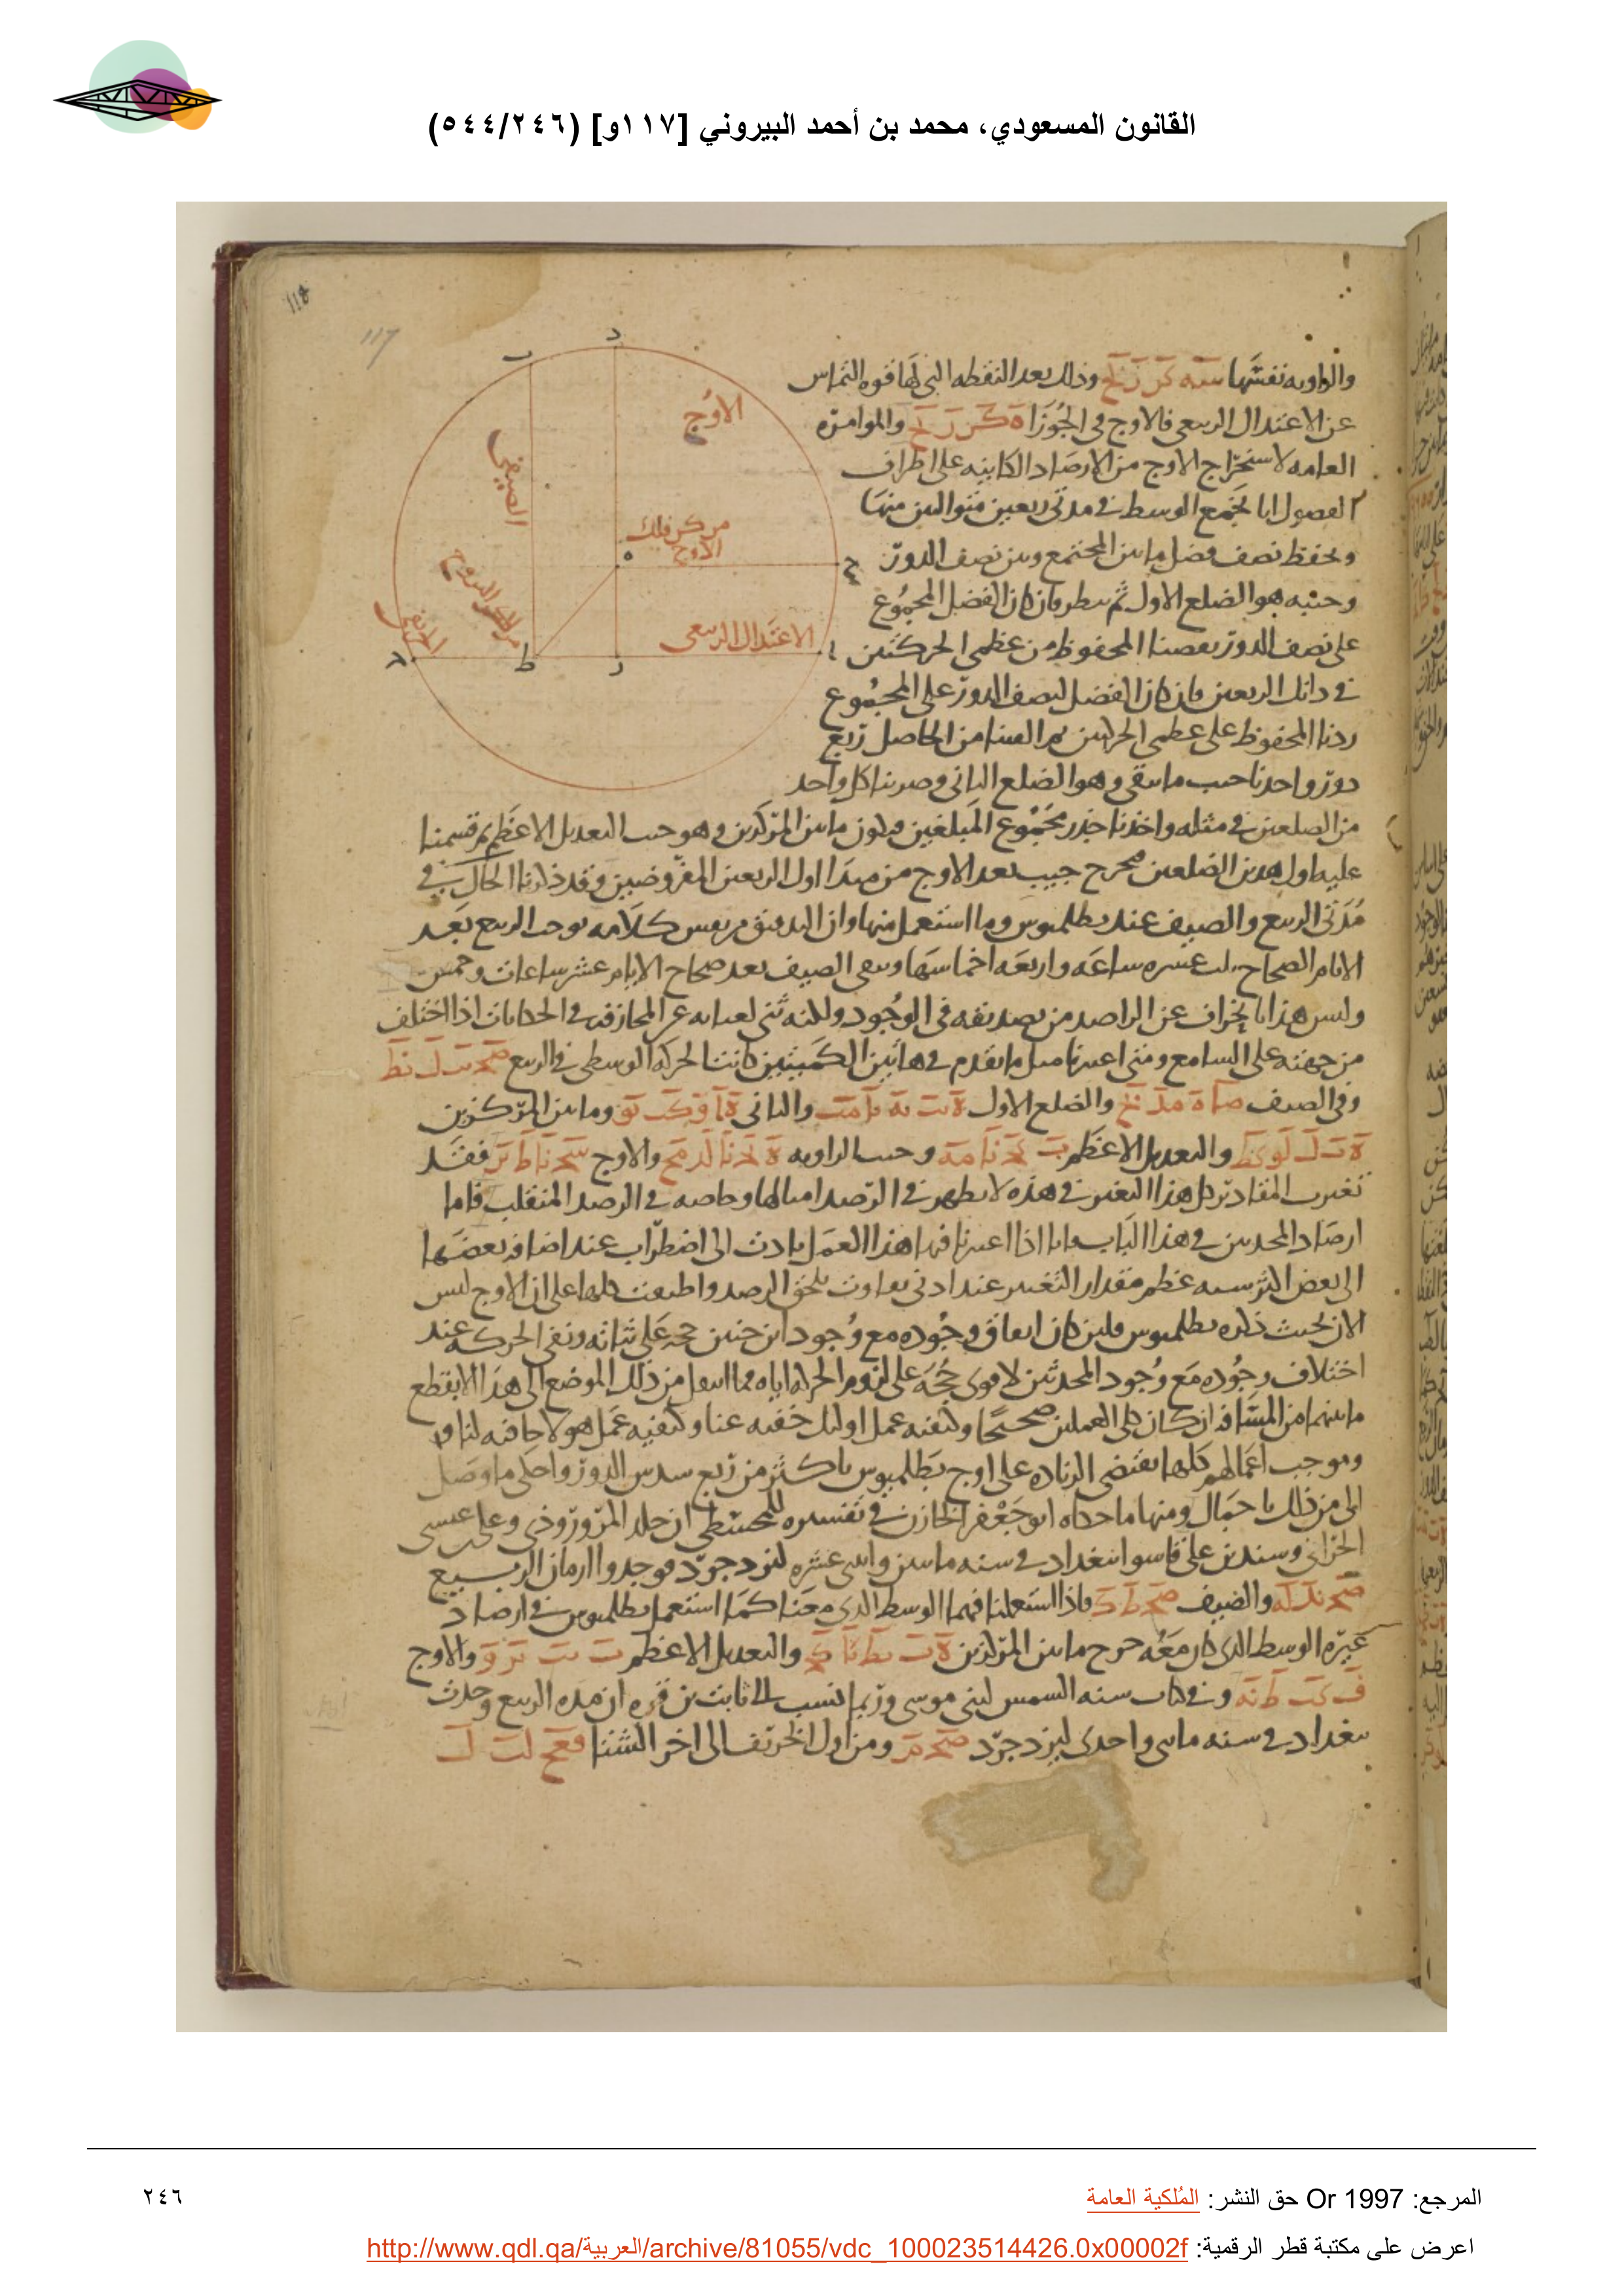 القانون المسعودي، محمد بن أحمد البيروني [١١٧و] (٥٤٤/٢٤٦)
118
117
د
ب
الاوج
الصيفي
مركز فلك
الاوج
ه
ج
مركز البروج
الاعتدال الربيعي
ا
ط
ر
والزاويه نفسها وذلك بعد النقطه التي لها قوه التماس
عن الاعتدال الربيعي فالاوج في الجوزا والموامره
العامه لاستخراج الاوج من الارصاد الكاينه على اطراف
الفصول انا نجمع الوسط في مدتي ربعين متواليين منها
ونحفظ نصف فضل ما بين المجتمع وبين نصف الدور
وجيبه هو الضلع الاول ثم ننظر فان كان الفضل المجموع
على نصف الدور نقصنا المحفوظ من عظمى الحركتين
في ذانك الربعين وان كان الفضل لنصف الدور على المجموع
زدنا المحفوظ على عظمى الحركتين ثم القينا من الحاصل ربع
دور واخذنا جيب ما بقي وهو الضلع الثاني وضربنا كل واحد
من الضلعين في مثله واخذنا جذر مجموع المبلغين فيكون ما بين المركزين وهو جيب التعديل الاعظم ثم قسمنا
عليه اول هذين الضلعين فخرج جيب بعد الاوج من مبدا اول الربعين المفروضين وقد ذكرنا الحال في
مدتي الربيع والصيف عند بطلميوس وما استعمل منها وان التدقيق من نفس كلامه يوجب الربيع بعد
الايام الصحاح عشره ساعه واربعه اخماسها وبقي الصيف بعد صحاح الايام عشر ساعات وخمس
وليس هذا بانحراف عن الراصد من تصديقه في الوجود ولكنه عن المجازفه في الحكايات اذا اختلف
من جهته على السامع ومتى اعتبرنا مثل ما تقدم في هاتين الكميتين كانت الحركه الوسطى في الربيع
وفي الصيف والضلع الاول والثاني وما بين المركزين
والتعديل الاعظم وجيب الزاويه والاوج فقد
تغيرت المقادير كل هذا التغير في هذه لا يظهر في الرصد امثالها وخاصه في الرصد المنقلب فاما
ارصاد المحدثين في هذا الباب فانا اذا اعتبرنا فيها هذا العمل تادت الى اضطراب عند اضافه بعضها
الى بعض اكثر سببه عظم مقدار التغير عند ادنى تفاوت يلحق الرصد واطبقت كلها على ان الاوج ليس
الان بحيث ذكره بطلميوس فلين كان اتفاق وجوده مع وجود ابرخس حجه على ثباته ونفي الحركه عنه
اختلاف وجوده مع وجود المحدثين لاقوى حجه على لزوم الحركه اياه فما انتقل من ذلك الموضع الى هذا الا بقطع
ما بينهما من المسافه ان كان كلي العملين صحيحا وكيفيه عمل اوليك خفيه عنا وكيفيه عمل هولا خافيه لنا
وموجب اعمالهم كلها يقتضي الزياده على اوج بطلميوس باكثر من ربع سدس الدور واحكي ما وصل
الي من ذلك باجمال ومنها ما حكاه ابو جعفر الخازن في تفسيره للمجسطي ان خلد المروروذي وعلي بن عيسى
الحراني وسند بن علي قاسوا ببغداد في سنه ماتين واثني عشره ليزدجرد فوجدوا ازمان الربيع
والصيف فاذا استعملنا فيها الوسط الذي معنا كما استعمل بطلميوس في ارصاد
غيره الوسط الذي كان معه خرج ما بين المركزين والتعديل الاعظم والاوج
وفي كتاب سنه الشمس لبني موسى وربما نسب الى ثابت بن قره ان مده الربيع وجدت
ببغداد في سنه ماتين واحدى ليزدجرد ومن اول الخريف الى اخر الشتا
المرجع: Or 1997 حق النشر: المُلكية العامة
٢٤٦
اعرض على مكتبة قطر الرقمية: http://www.qdl.qa/العربية/archive/81055/vdc_100023514426.0x00002f